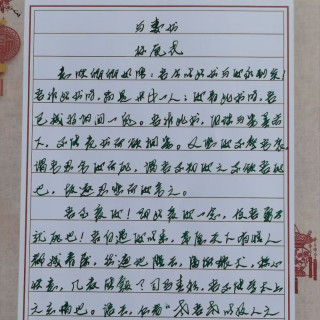 与妻书
林觉民
意映卿卿如晤：吾今以此书与汝永别矣！
吾作此书时，尚是世中一人；汝看此书时，吾
已成为阴间一鬼。吾作此书，泪珠和笔墨齐
下，不能竟书而欲搁笔。又恐汝不察吾衷，
谓吾忍舍汝而死，谓吾不知汝之不欲吾死
也，故遂忍悲为汝言之。
吾至爱汝！即此爱汝一念，使吾勇于
就死也！吾自遇汝以来，常愿天下有情人
都成眷属，然遍地腥云，满街狼犬，称心
快意，几家能够？司马青衫，吾不能学太上
之忘情也。语云，仁者“老吾老以及人之